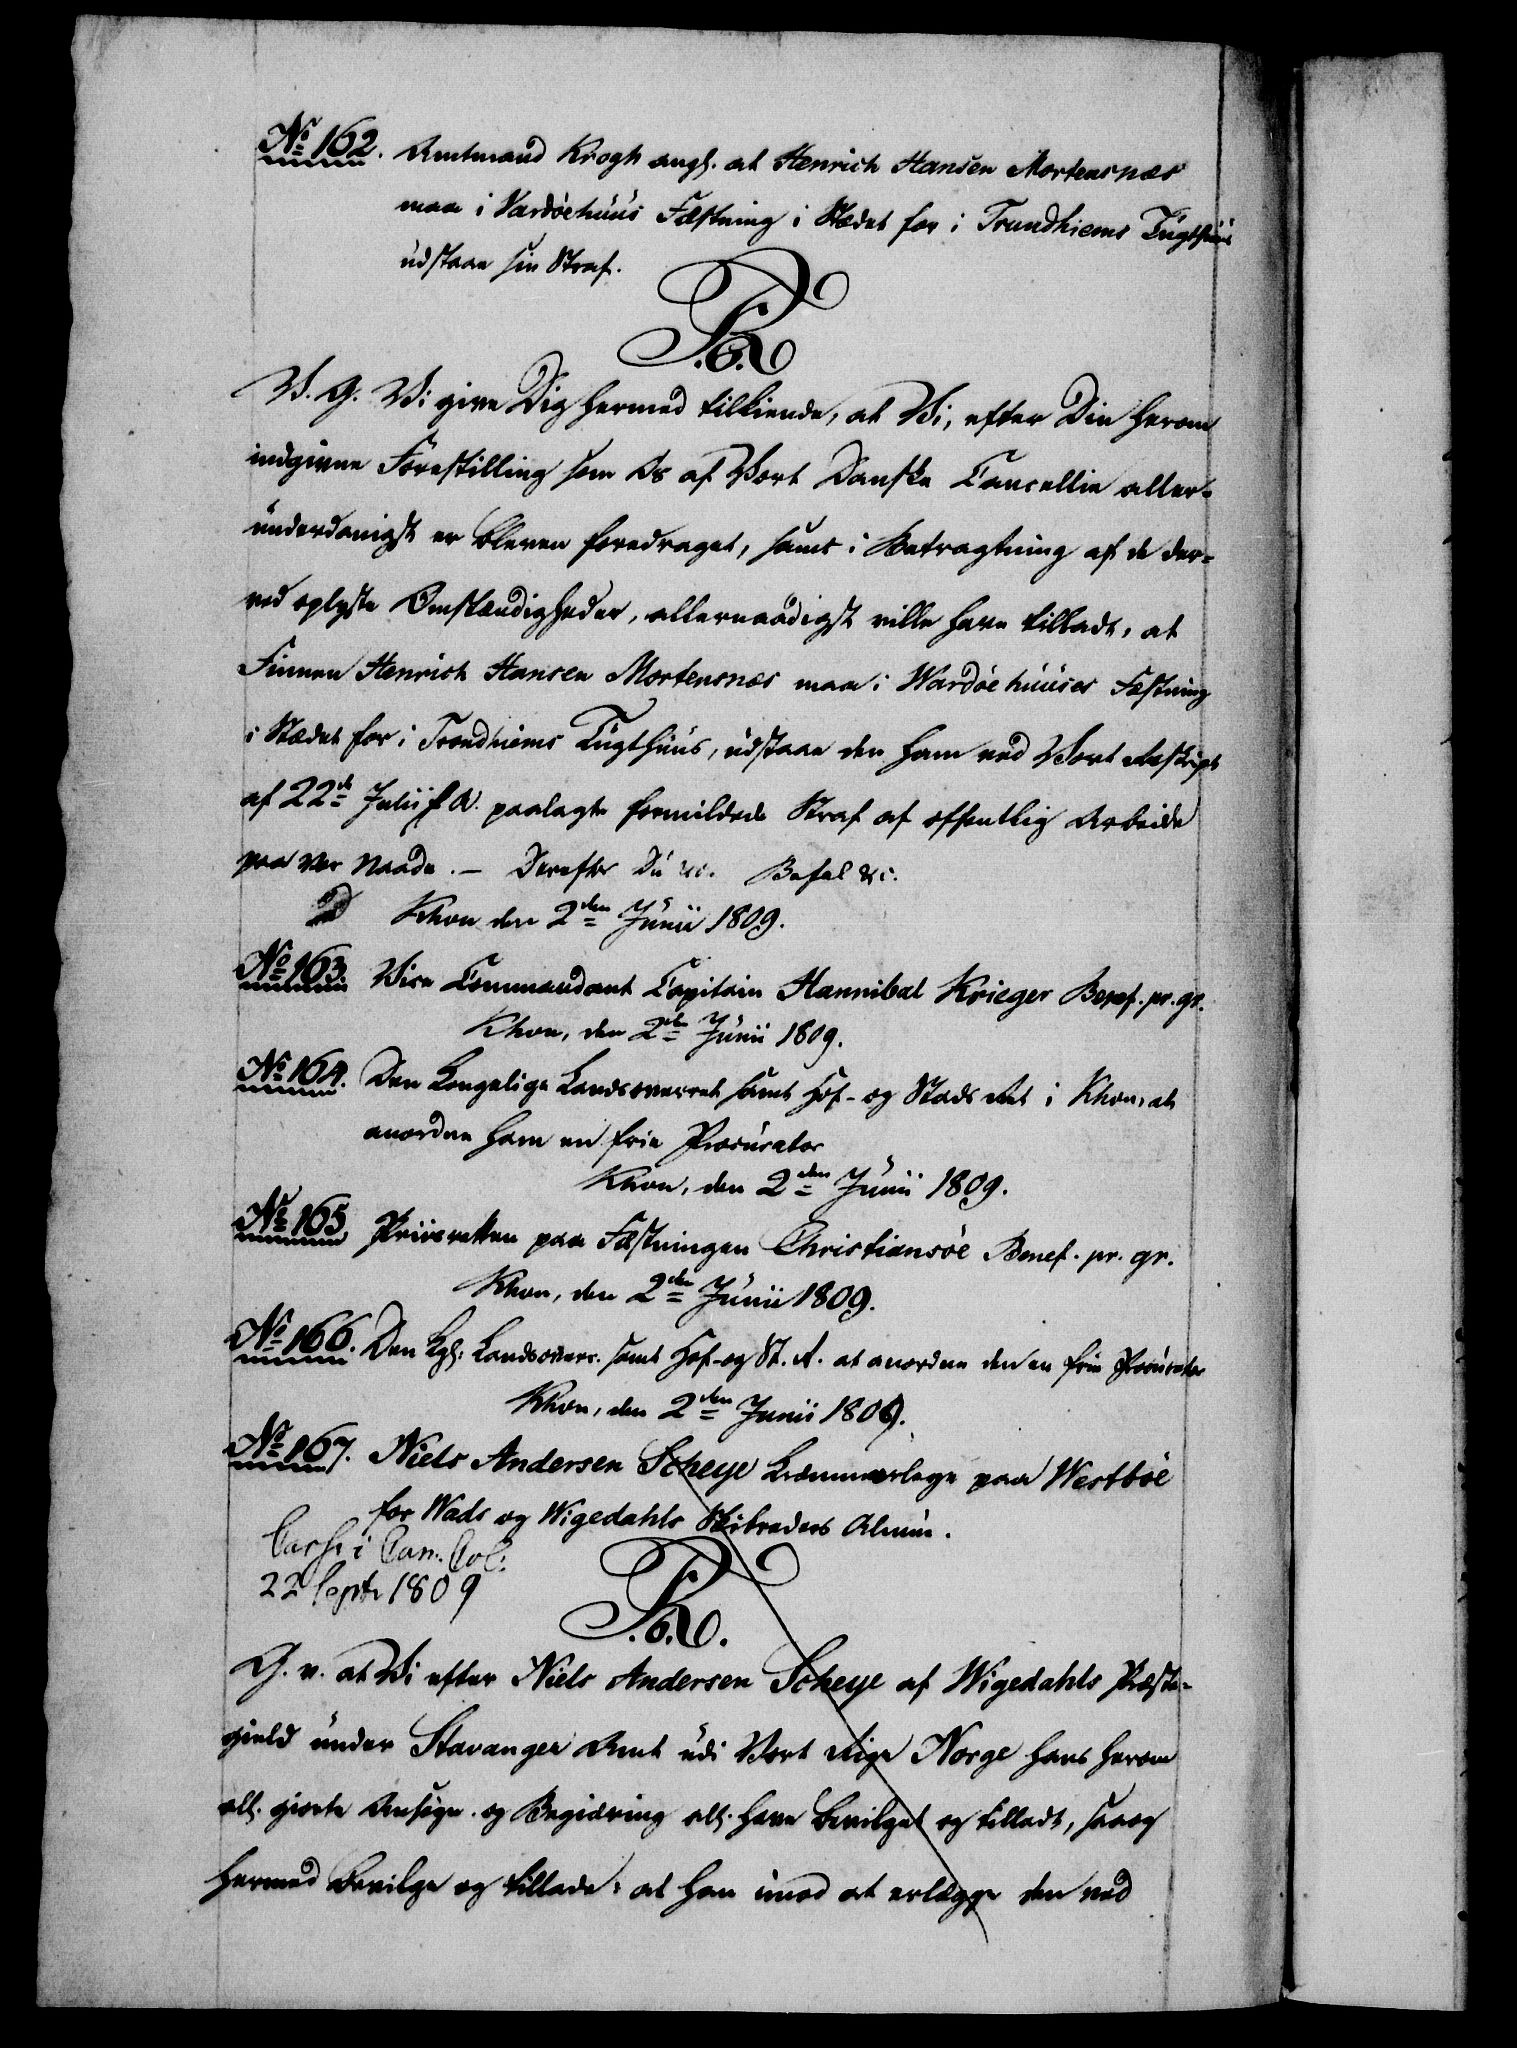 No 162. Amtmand Krogh angl. at Henrich Hansen Mortensnæs
maa i Vardöehuus Fæstning i Stædet for i Trundhiems Tugthuus
udstaae sin Straf.
V. G. Vi give Dig hermed tilkiende, at Vi, efter Din herom
indgivne Forestilling som Os af Vort Danske Cancellie aller-
underdanigst er bleven foredraget, samt i Betragtning af de der-
ved oplyste Omstændigheder, allernaadigst ville have tilladt, at
Finnen Henrich Hansen Mortensnæs maa i Wardöehuuses Fæstning
i Stædet for i Trondhiems Tugthuus, udstaae den ham ved Vort Rescript
af 22de Julii f. A. paalagte formildede Straf af offentlig Arbeide
paa Vor Naade. — Derefter Du &c. Befal &c.
Khvn den 2den Junii 1809.
No 163. Vice Commandant Capitain Hannibal Krieger Benef. pr. gr.
Khvn, den 2den Junii 1809.
No 164. Den Kongelige Landsoverret samt Hof- og Stads Ret i Khvn, at
anordne ham en frie Procurator
Khvn, den 2den Junii 1809.
No 165 Priiseretten paa Fæstningen Christiansöe Benef. pr. gr.
Khvn, den 2den Junii 1809.
No 166. Den Kgl. Landsoverr. samt Hof- og St. R. at anordne den en frie Procurator
Khvn, den 2den Junii 1809.
No 167. Niels Andersen Scheye Kræmmerleye paa Westböe
for Wads og Wigedahls Skibreders Almue.
Cass: i Can. Col:
22 Septr 1809
G. v. at Vi efter Niels Andersen Scheye af Wigedahls Præste-
gield under Stavanger Amt udi Vort Rige Norge hans herom
all. giorte Ansøgn. og Begiæring all. have bevilget og tilladt, saa og
hermed bevilge og tillade: at han imod at erlægge den ved